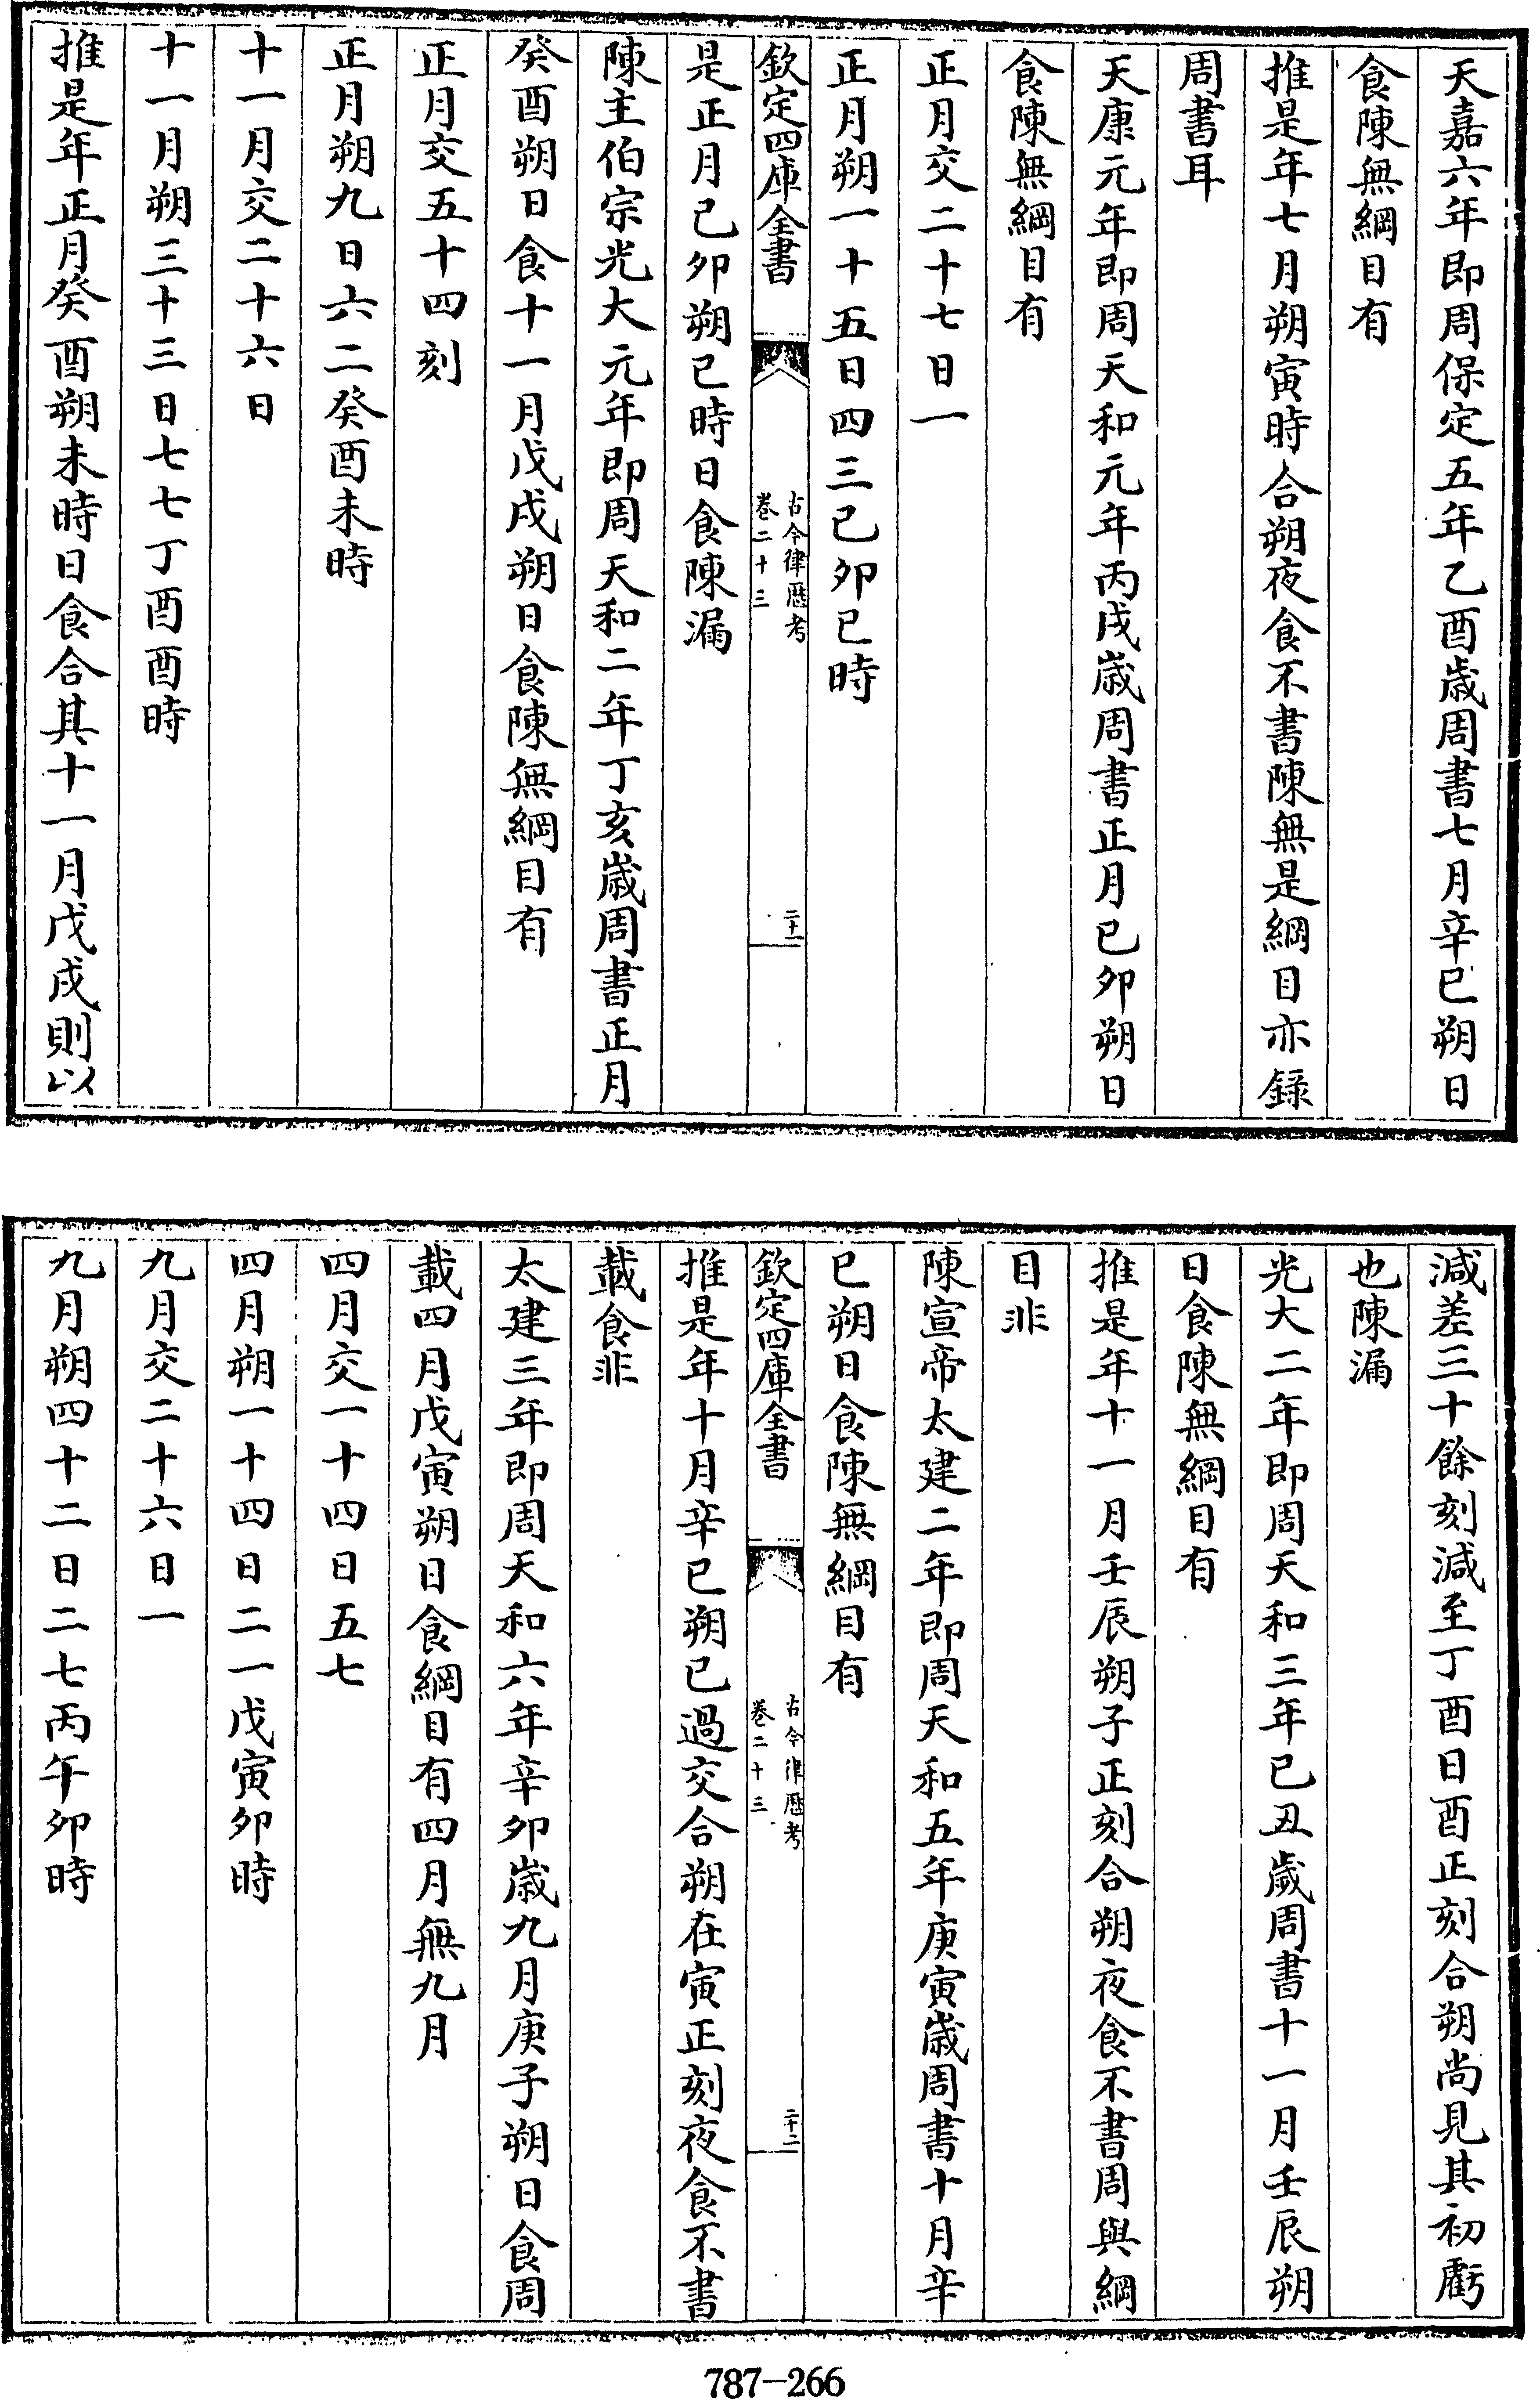 天嘉六年即周保定五年乙酉歳周書七月辛巳朔日
食陳無綱目有
推是年七月朔寅時合朔夜食不書陳無是綱目亦錄
周書耳
天康元年即周天和元年丙戌歳周書正月已卯朔日
食陳無綱目有
正月交二十七日一
正月朔一十五日四三已卯已時
欽定四庫全書
古今律歷考
卷二十三
二十一
是正月己卯朔已時日食陳漏
陳主伯宗光大元年即周天和二年丁亥歳周書正月
癸酉朔日食十一月戊戌朔日食陳無綱目有
正月交五十四刻
正月朔九日六二癸酉未時
十一月交二十六日
十一月朔三十三日七七丁酉酉時
推是年正月癸酉朔未時日食合其十一月戊戌則以
減差三十餘刻減至丁酉日酉正刻合朔尚見其初虧
也陳漏
光大二年即周天和三年已丑歲周書十一月壬辰朔
日食陳無綱目有
推是年十一月壬辰朔子正刻合朔夜食不書周與綱
目非
陳宣帝太建二年即周天和五年庚寅歳周書十月辛
巳朔日食陳無綱目有
欽定四庫全書
古今律歷考
卷二十三
二十二
推是年十月辛巳朔已過交合朔在寅正刻夜食不書
載食非
太建三年即周天和六年辛卯歳九月庚子朔日食周
載四月戊寅朔日食綱目有四月無九月
四月交一十四日五七
四月朔一十四日二一戊寅卯時
九月交二十六日一
九月朔四十二日二七丙午卯時
787-266